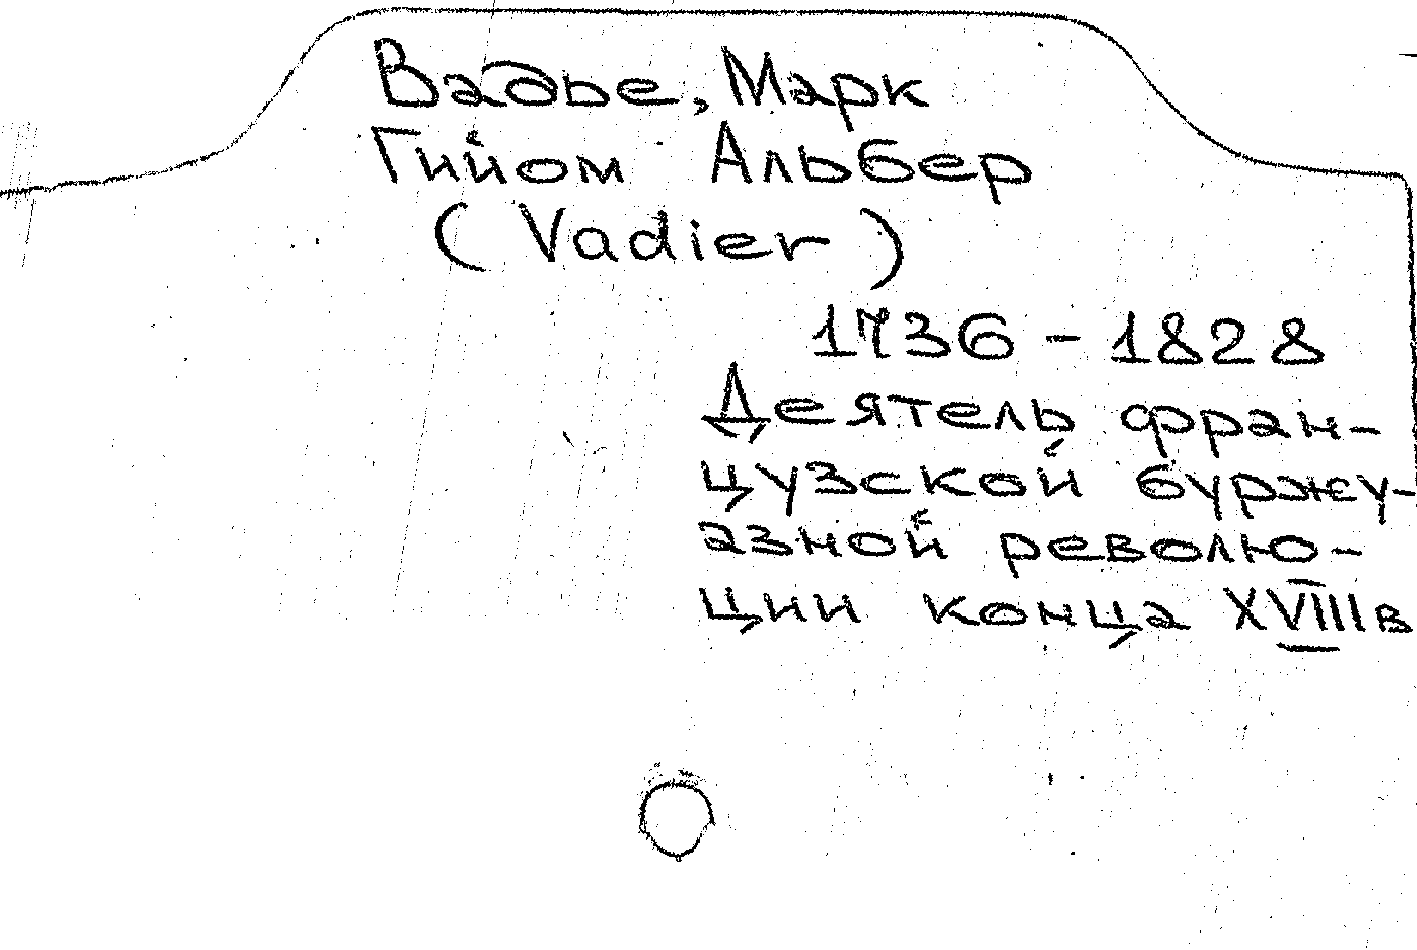 Вадье, Марк
Гийом Альбер
(Vadier)
1736 - 1828
Деятель фран-
цузской буржу-
азной револю-
ции конца XVIII в